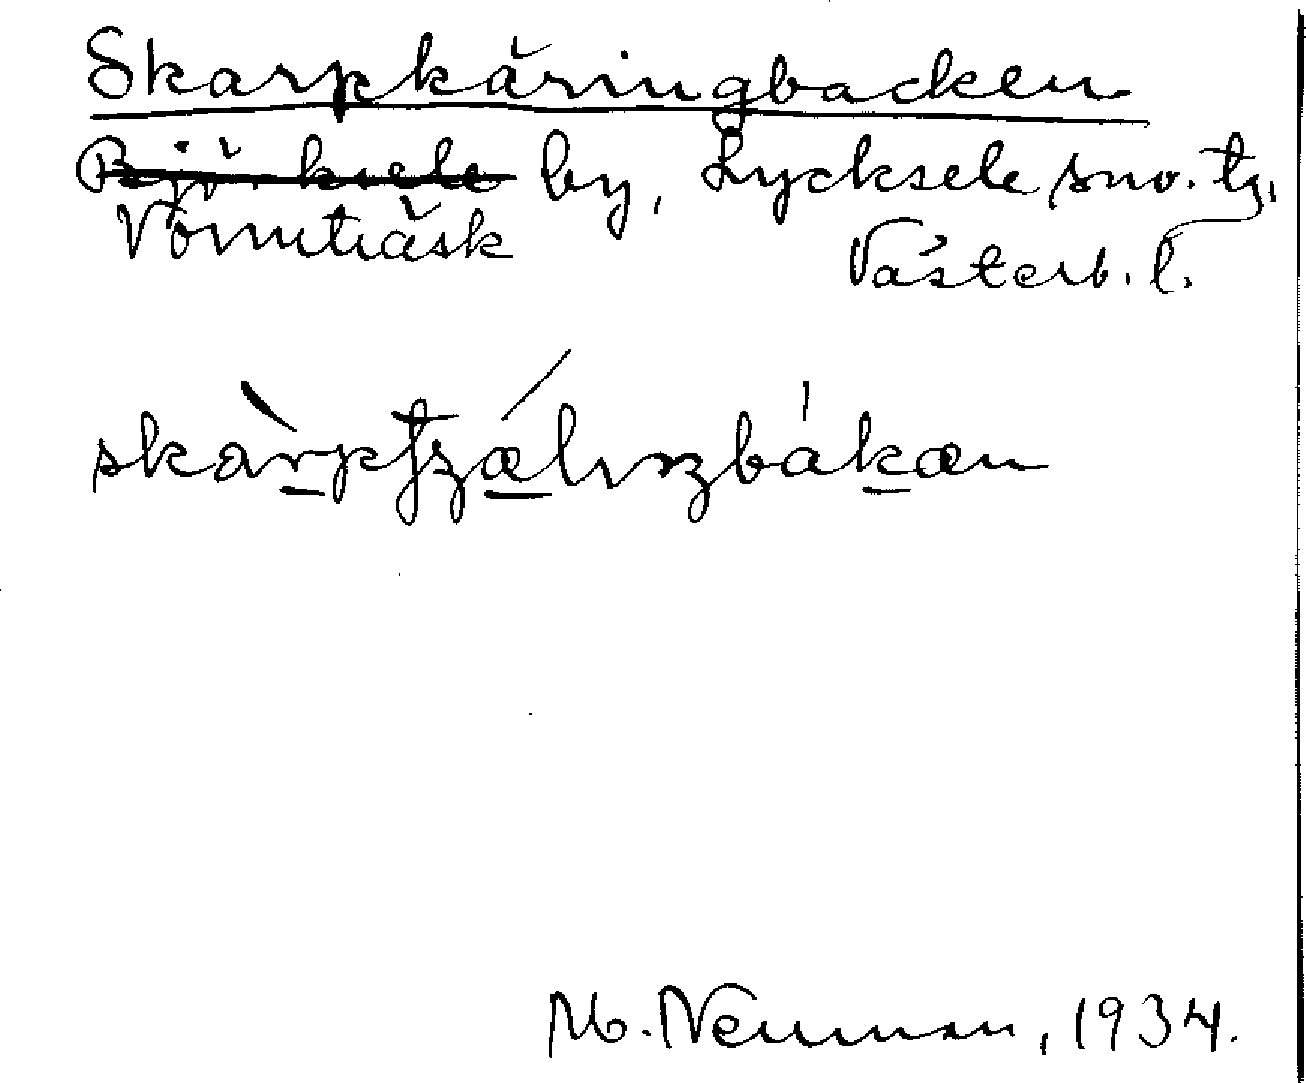 Skarpkäringbacken
~~Björksele~~ by, Lycksele snv. tg,
Vormträsk Västerb. l.
M. Neuman, 1934.